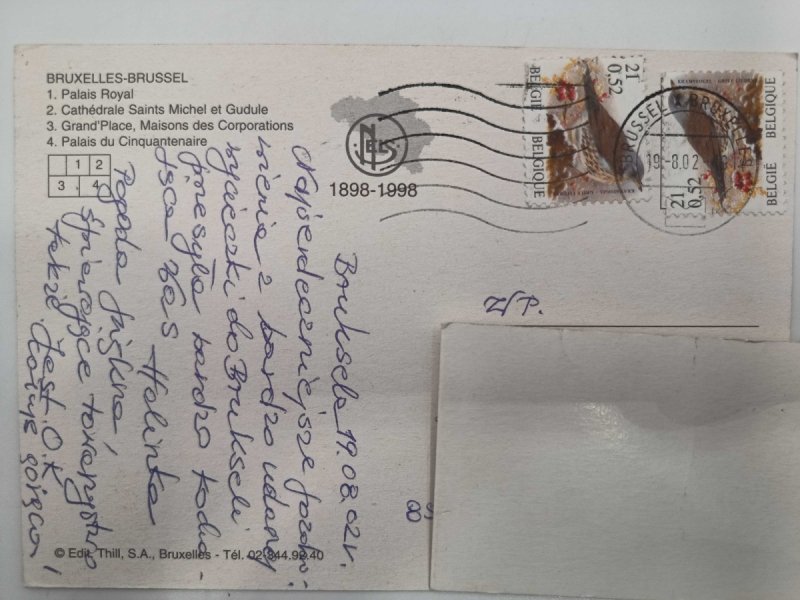 BRUXELLES-BRUSSEL
1. Palais Royal
2. Cathédrale Saints Michel et Gudule
3. Grand'Place, Maisons des Corporations
4. Palais du Cinquantenaire
1 2
3 4
NELS
1898-1998
BELGIË BELGIQUE
21
0,52
KRAMSVOGEL - GRIVE LITORNE
BRUSSEL X BRUXELLES
19-8.02
BELGIË BELGIQUE
21
0,52
KRAMSVOGEL - GRIVE LITORNE
Bruksela 19.08.02r.
Najserdeczniejsze pozdro-
wienia z bardzo udanej
wycieczki do Brukseli
przesyła bardzo kocha-
jąca Was Halinka
Pogoda śliczna,
towarzystwo
także. Jest O.K
gorąco!
W.P.
© Edit. Thill, S.A., Bruxelles - Tél. 02/344.92.40